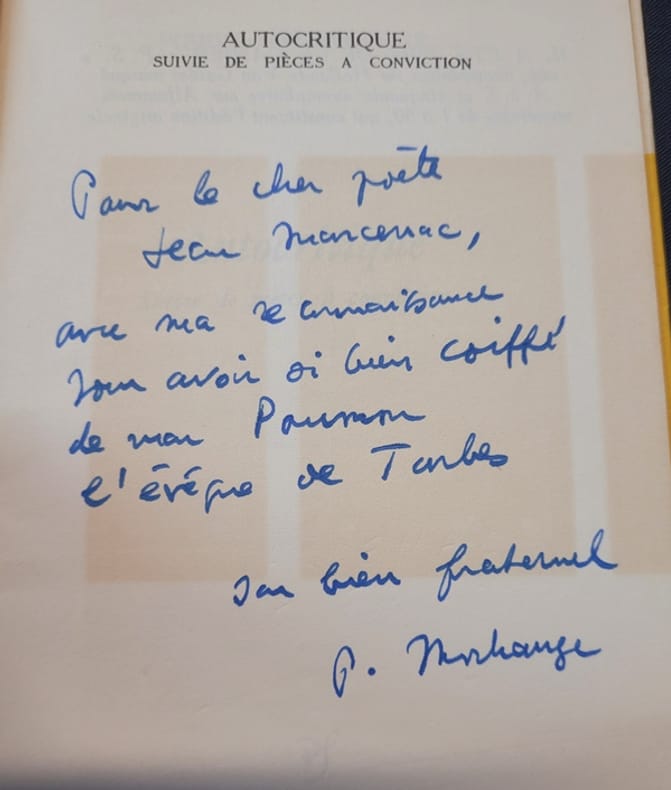 AUTOCRITIQUE
SUIVIE DE PIÈCES A CONVICTION
Pour le cher poète
Jean Marcenac,
avec ma reconnaissance
pour avoir si bien coiffé
de mon Poumon
l'évêque de Tarbes
son bien fraternel
P. Morhange